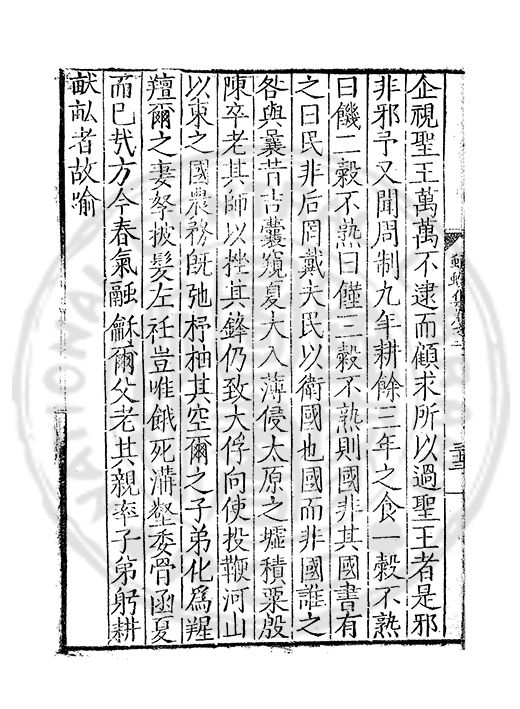 企視聖王萬萬不逮而顧求所以過聖王者是邪
非邪予又聞周制九年耕餘三年之食一穀不熟
曰饑二穀不熟曰僅三穀不熟則國非其國書有
之曰民非后罔戴夫民以衛國也國而非國誰之
咎與曩昔吉囊窺夏大入薄侵太原之墟積粟殷
陳卒老其師以挫其鋒仍致大俘向使投鞭河山
以東之國農務旣弛杼柚其空爾之子弟化爲腥
羶爾之妻孥披髮左衽豈唯餓死溝壑委骨函夏
而已㢤方今春氣融龢爾父老其親率子弟躬耕
畎畝者故喻
三十三